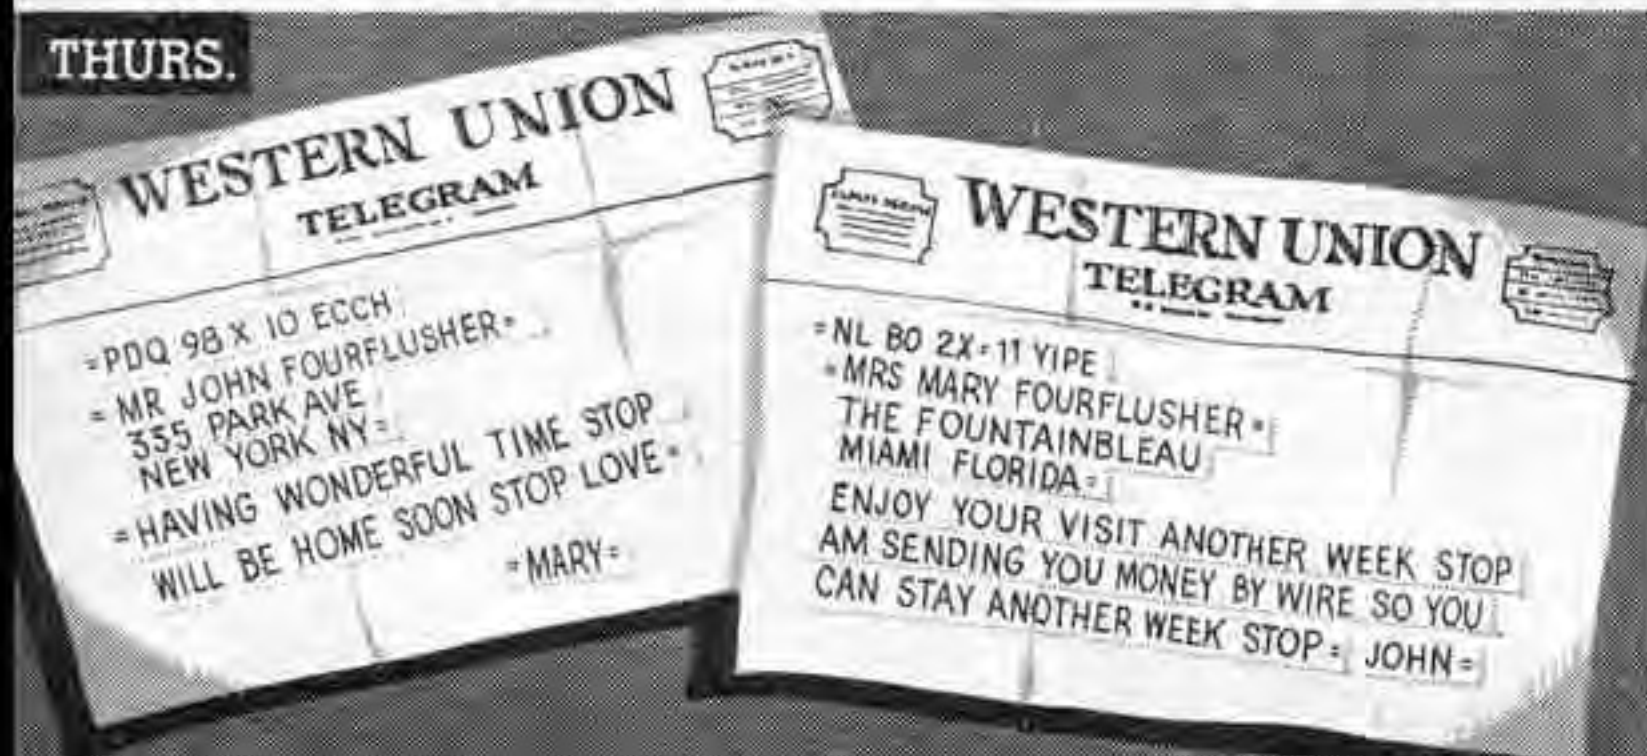 THURS.
WESTERN UNION
TELEGRAM
=PDQ 98 X 10 ECCH
= MR JOHN FOURFLUSHER=
335 PARK AVE
NEW YORK NY=
=HAVING WONDERFUL TIME STOP
WILL BE HOME SOON STOP LOVE=
=MARY=
WESTERN UNION
TELEGRAM
=NL BO 2X=11 YIPE
=MRS MARY FOURFLUSHER=
THE FOUNTAINBLEAU
MIAMI FLORIDA=
ENJOY YOUR VISIT ANOTHER WEEK STOP
AM SENDING YOU MONEY BY WIRE SO YOU
CAN STAY ANOTHER WEEK STOP= JOHN=